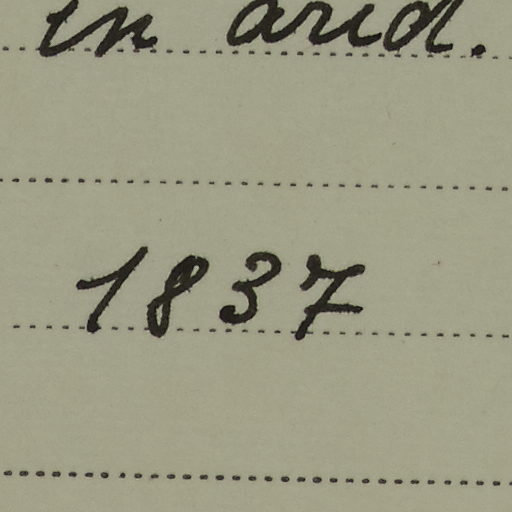 in arid.
1837